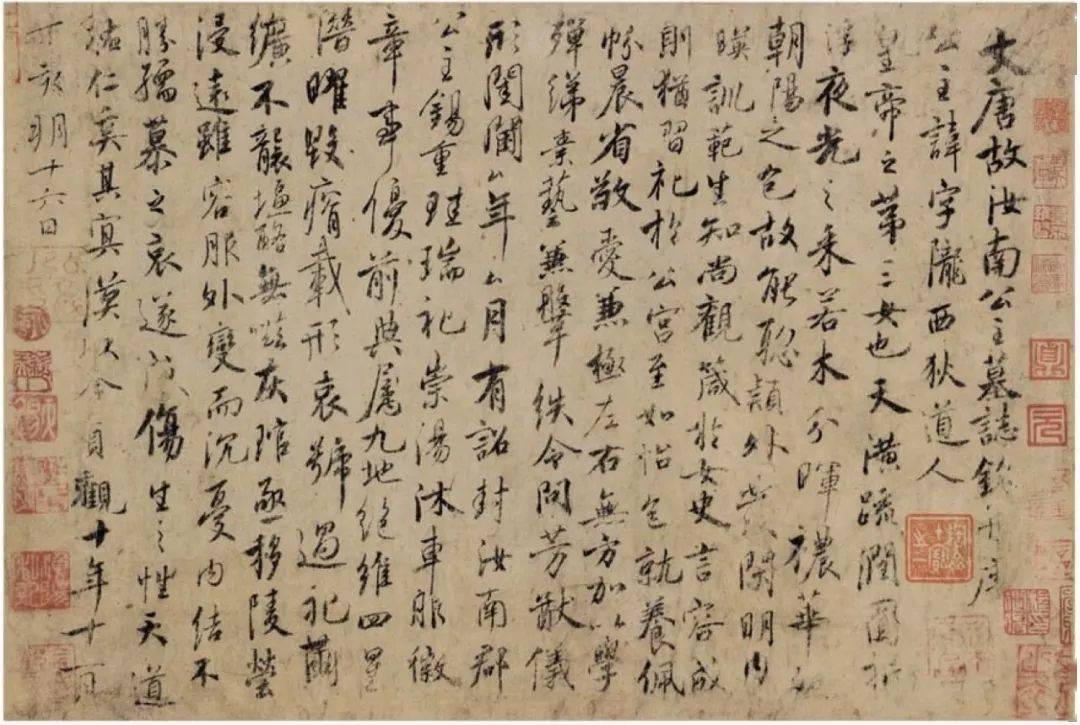 大唐故汝南公主墓誌銘并序
公主諱字隴西狄道人
皇帝之第三女也天潢疏潤圓折
浮夜光之采若木分暉穠華照
朝陽之色故能聰穎外發閑明內
暎訓範生知尚觀箴於女史言容成
則猶習礼於公宮至如怡色就養佩
帉晨省敬愛兼極左右無方加以學
殫綈素藝兼鞶紩令問芳猷儀
形閨閫厶年厶月有詔封汝南郡
公主錫重珪瑞礼崇湯沐車服徽
章事優前典属九地絕維四星
潛曜毀瘠載形哀號過礼繭
纊不襲塩酪無嗞灰琯亟移陵塋
浸遠雖容服外變而沉憂內結不
勝孺慕之哀遂成傷生之性天道
祐仁奚其冥漠以今貞觀十年十一月
丁亥朔十六日